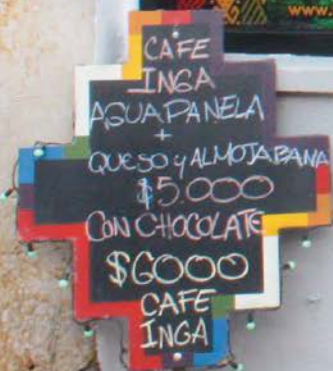 www.
CAFE
INGA
AGUAPANELA
+
QUESO y ALMOJABANA
$5.000
CON CHOCOLATE
$6000
CAFE
INGA